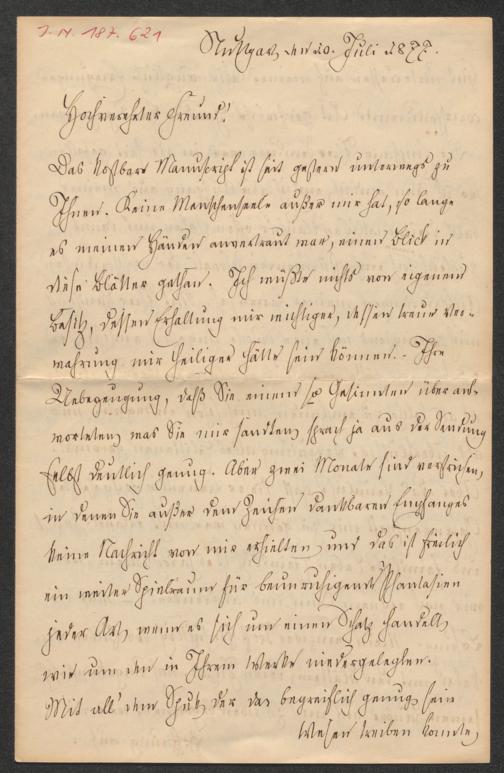 J. N. 187.621
Stuttgart, den 20. Juli 1877.
Hochverehrter Freund!
Das kostbare Manuscript ist seit gestern unterwegs zu
Ihnen. Keine Menschenseele außer mir hat, so lange
es meinen Händen anvertraut war, einen Blick in
diese Blätter gethan. Ich wüßte nichts von eigenem
Besitz, dessen Erhaltung mir wichtiger, dessen treue Ver-
wahrung mir heiliger hätte sein können. - Ihre
Ueberzeugung, daß Sie einem so Gesinnten überant-
worteten, was Sie mir sandten, sprach ja aus der Sendung
selbst deutlich genug. Aber zwei Monate sind verstrichen,
in denen Sie außer dem Zeichen dankbaren Empfanges
keine Nachricht von mir erhielten, und das ist freilich
ein weiter Spielraum für beunruhigende Phantasien
jeder Art, wenn es sich um einen Schatz handelt,
wie um den in Ihrem Werke niedergelegten.
Mit all' dem Spuk, der da begreiflich genug sein
Wesen treiben konnte,